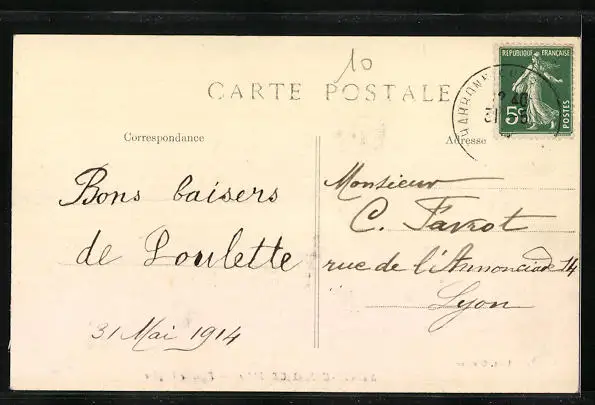 10
CARTE POSTALE
REPUBLIQUE FRANÇAISE
5c
POSTES
12 40
31
Correspondance
Adresse
Bons baisers
de Loulette
31 Mai 1914
Monsieur
C. Favrot
rue de l'Annonciade 14
Lyon